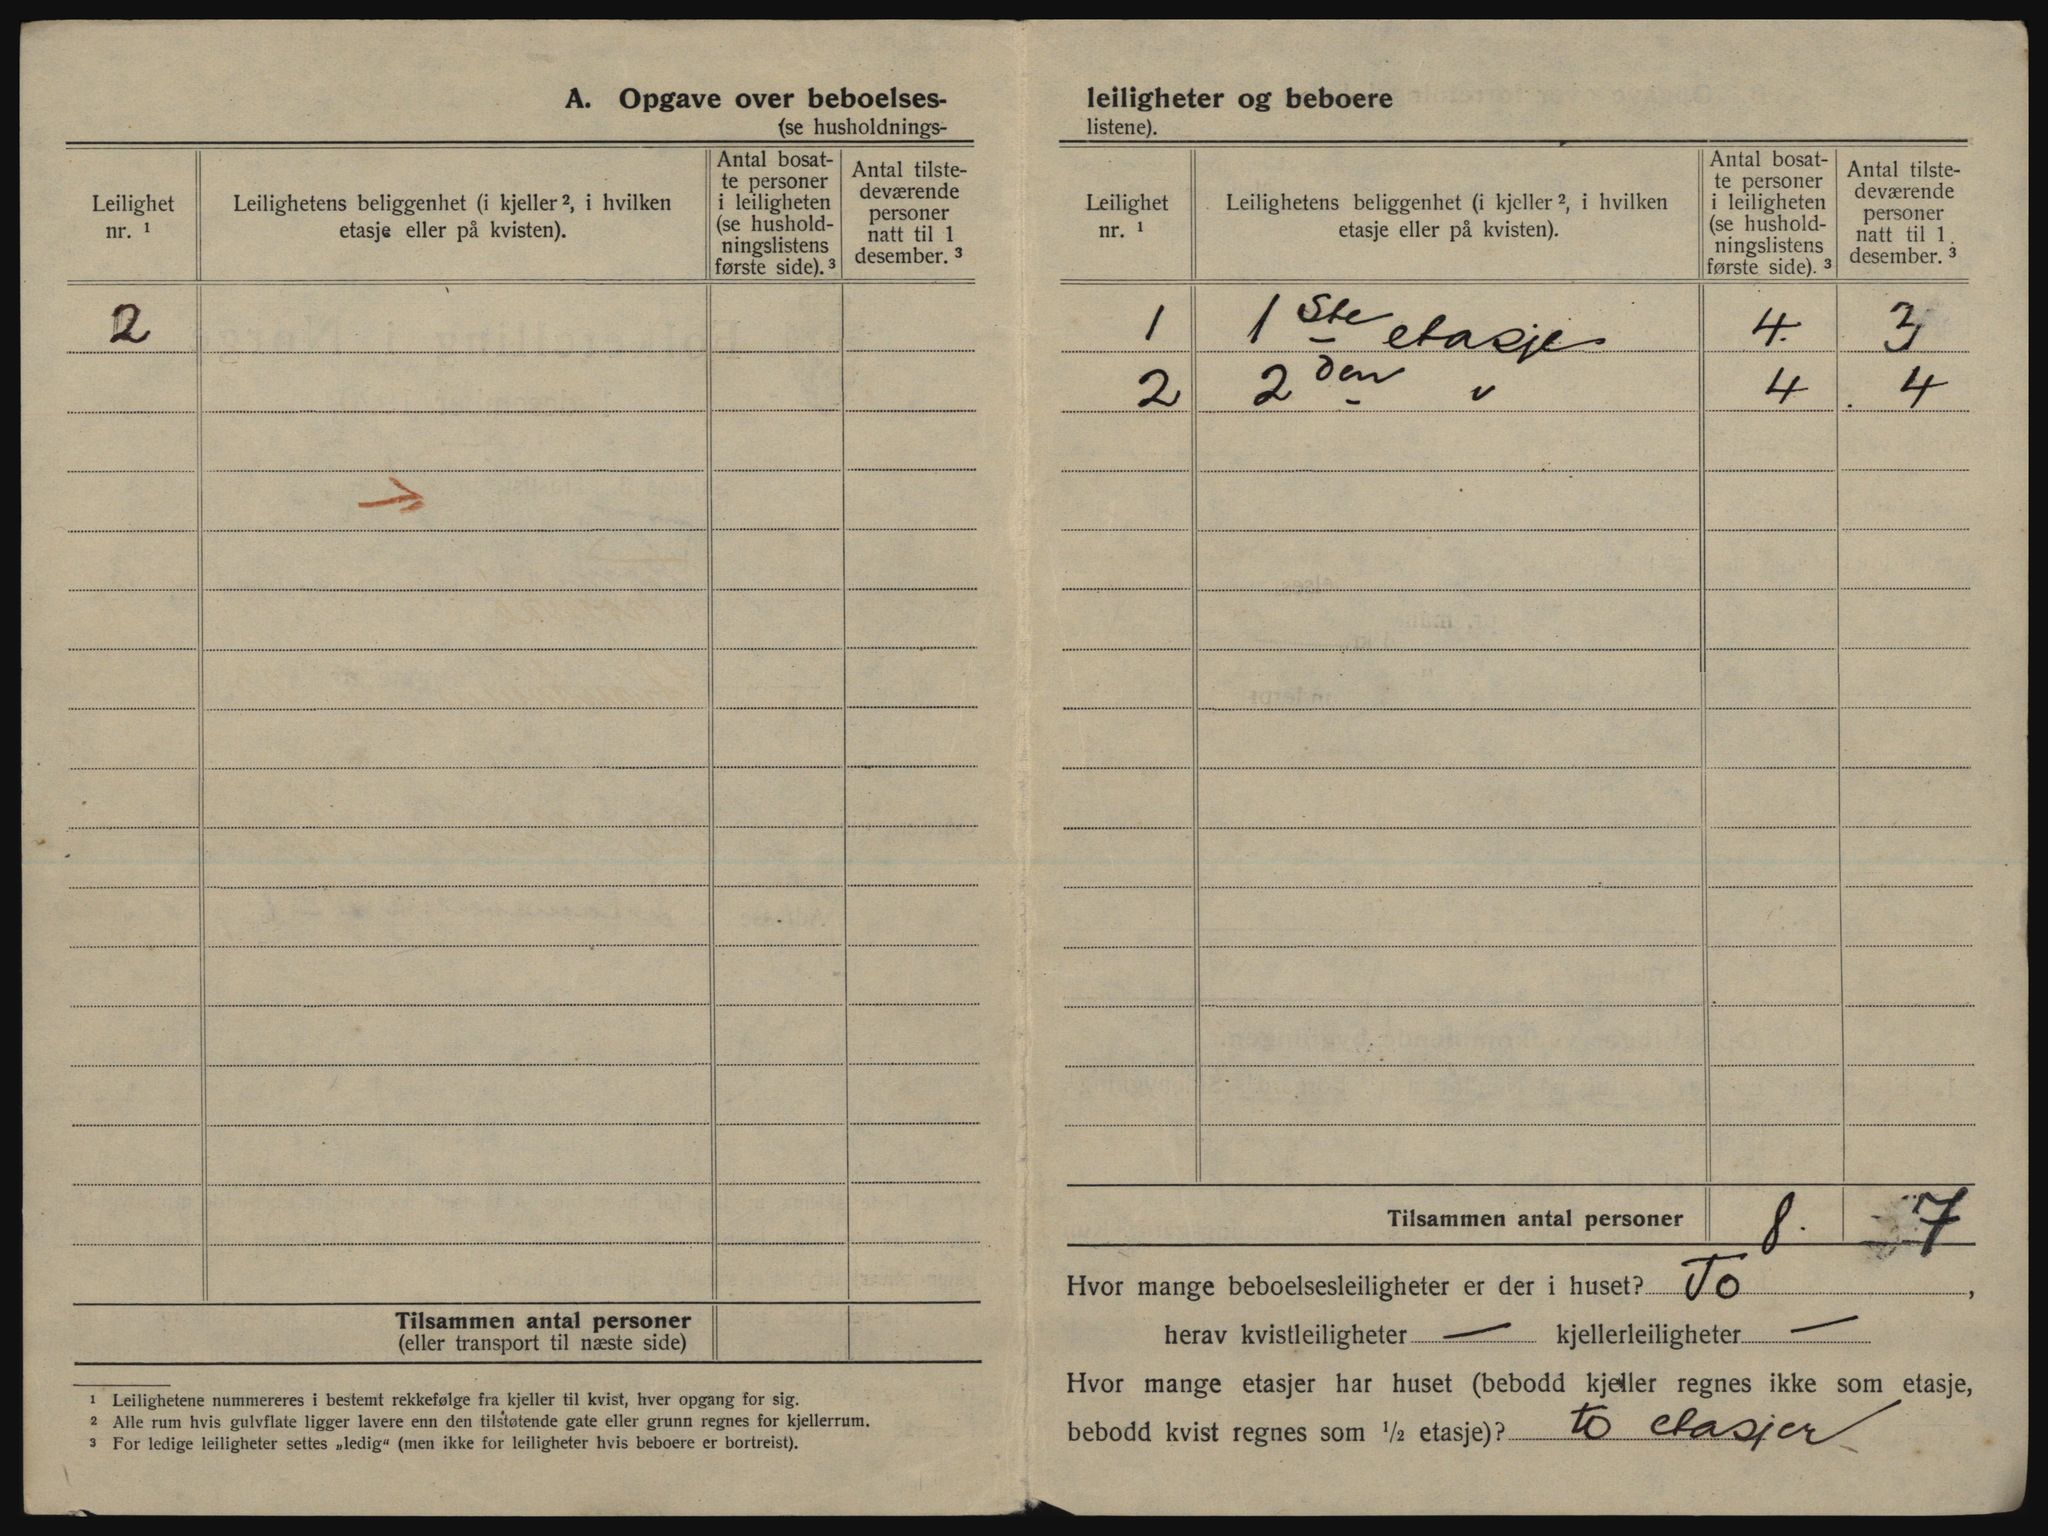 A. Opgave over beboelses-
(se husholdnings-
Leilighet
nr. ¹
Leilighetens beliggenhet (i kjeller ², i hvilken
etasje eller på kvisten).
Antal bosat-
te personer
i leiligheten
(se hushold-
ningslistens
første side). ³
Antal tilste-
deværende
personer
natt til 1
desember. ³
2
Tilsammen antal personer
(eller transport til næste side)
¹ Leilighetene nummereres i bestemt rekkefølge fra kjeller til kvist, hver opgang for sig.
² Alle rum hvis gulvflate ligger lavere enn den tilstøtende gate eller grunn regnes for kjellerrum.
³ For ledige leiligheter settes „ledig“ (men ikke for leiligheter hvis beboere er bortreist).
leiligheter og beboere
listene).
Leilighet
nr. ¹
Leilighetens beliggenhet (i kjeller ², i hvilken
etasje eller på kvisten).
Antal bosat-
te personer
i leiligheten
(se hushold-
ningslistens
første side). ³
Antal tilste-
deværende
personer
natt til 1
desember. ³
1 1ste etasje 4. 3
2 2den " 4 4
Tilsammen antal personer 8. 7
Hvor mange beboelsesleiligheter er der i huset? To,
herav kvistleiligheter — kjellerleiligheter —
Hvor mange etasjer har huset (bebodd kjeller regnes ikke som etasje,
bebodd kvist regnes som 1/2 etasje)? to etasjer